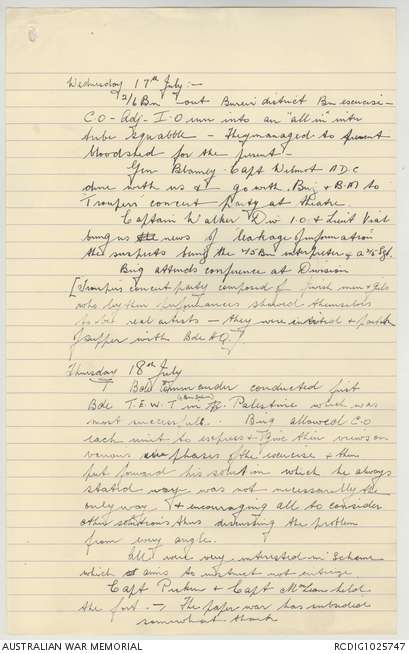 Wednesday 17th July :-
2/6 Bn out Bureir district Bn exercise -
C.O - Adj - I.O run into an "all in" intr
tribe squabble - They managed to prevent
bloodshed for the present -
Gen Blamey - Capt Wilmot A.D.C
dine with us & go with Brig & B.M to
Troupers concert party at theatre.
Captain Walker Div I.O & Lieut Vial
bring us the news of "leakage of information"
the suspects being the "45 Bn interpreter & a Sgt.
Brig attends conference at Division
[Troupers concert party composed of Jewish men & girls
who by their performances showed themselves
to be real artists - they were invited & partook
of supper with Bde HQ.]
Thursday 18th July
Bde Commander conducted first
Bde T.E.W.T in Palestine which was
most successful. Brig allowed C.O
each unit to express & give their views on
various phases of the exercise & then
put forward his solution which he always
stated was not necessarily the
only way & encouraging all to consider
other solutions thus discussing the problem
from every angle.
All were very interested in Scheme
which aims to instruct not criticize.
Capt Parker & Capt held
the fort. - The paper war has subsided
somewhat thank
AUSTRALIAN WAR MEMORIAL
RCDIG1025747